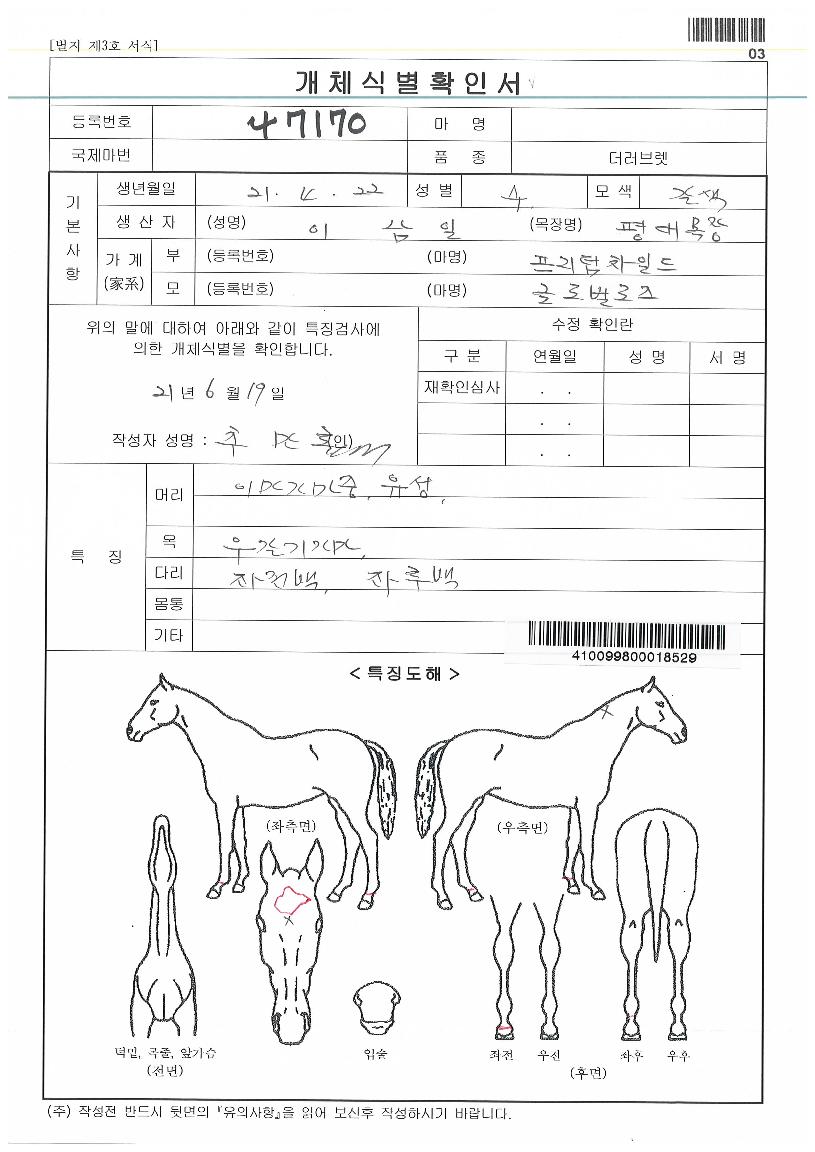 [별지 제3호 서식]
03
개체식별확인서
등록번호 47170 마 명
국제마번 품 종 더러브렛
기본사항
생년월일 21. 4. 22 성별 수 모색 갈색
생 산 자 (성명) 이 삼 일 (목장명) 평대목장
가 계 (家系) 부 (등록번호) (마명) 프리텀차일드
모 (등록번호) (마명) 글로벌로즈
위의 말에 대하여 아래와 같이 특징검사에
의한 개체식별을 확인합니다.
21년 6월 19일
작성자 성명 : 추 (인)
수정 확인란
구 분 연월일 성 명 서 명
재확인심사 . .
. .
. .
특 징
머리 유성.
목
다리 좌전백, 좌후백
몸통
기타
410099800018529
< 특징도해 >
(좌측면) (우측면)
턱밑, 목줄, 앞가슴
(전면)
입술
좌전 우전 좌후 우후
(후면)
(주) 작성전 반드시 뒷면의 『유의사항』을 읽어 보신후 작성하시기 바랍니다.